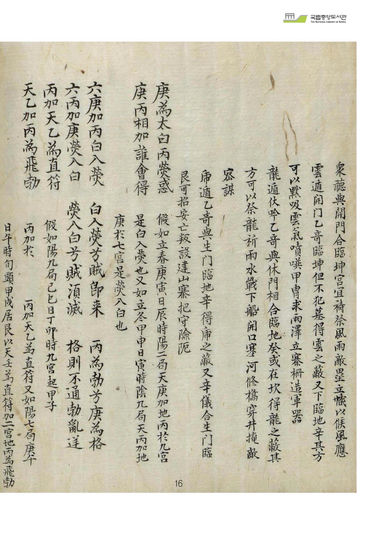 국립중앙도서관
衆龍與開門合臨坤宮宜祷祭風雨敵壘立幟以候風應
雲遁開門乙奇臨坤但不犯墓得雲之蔽又下臨地辛其方
可以黙吸雲氣噴噀甲冑求雨澤立寨柵造軍器
龍遁伏吟乙奇與休門相合臨地癸或在坎得龍之蔽其
方可以祭龍祈雨水戰下船開口塞河修橋穿井掩敵
密謀
虎遁乙奇與生門臨地辛得虎之蔽又辛儀合生門臨
艮可招安亡叛設達山寨把守險阨
庚為太白丙熒惑
庚丙相加誰會得
假如立春庚寅日辰時陽二局天庚加地丙於九宮
是白入熒也又如立冬甲申日寅時陰九局天丙加地
庚於七宮是熒入白也
六庚加丙白入熒 白入熒兮賊即來
六丙加庚熒入白 熒入白兮賊須滅
丙加天乙為直符
天乙加丙為飛勃
丙為勃兮庚為格
格則不通勃亂逆
假如陽九局己巳日丁卯時九宮起甲子
丙加於 丙加天乙為直符又如陽七局庚午
日午時旬頭甲戌居艮以天任為直符加二宮地丙為飛勃
16